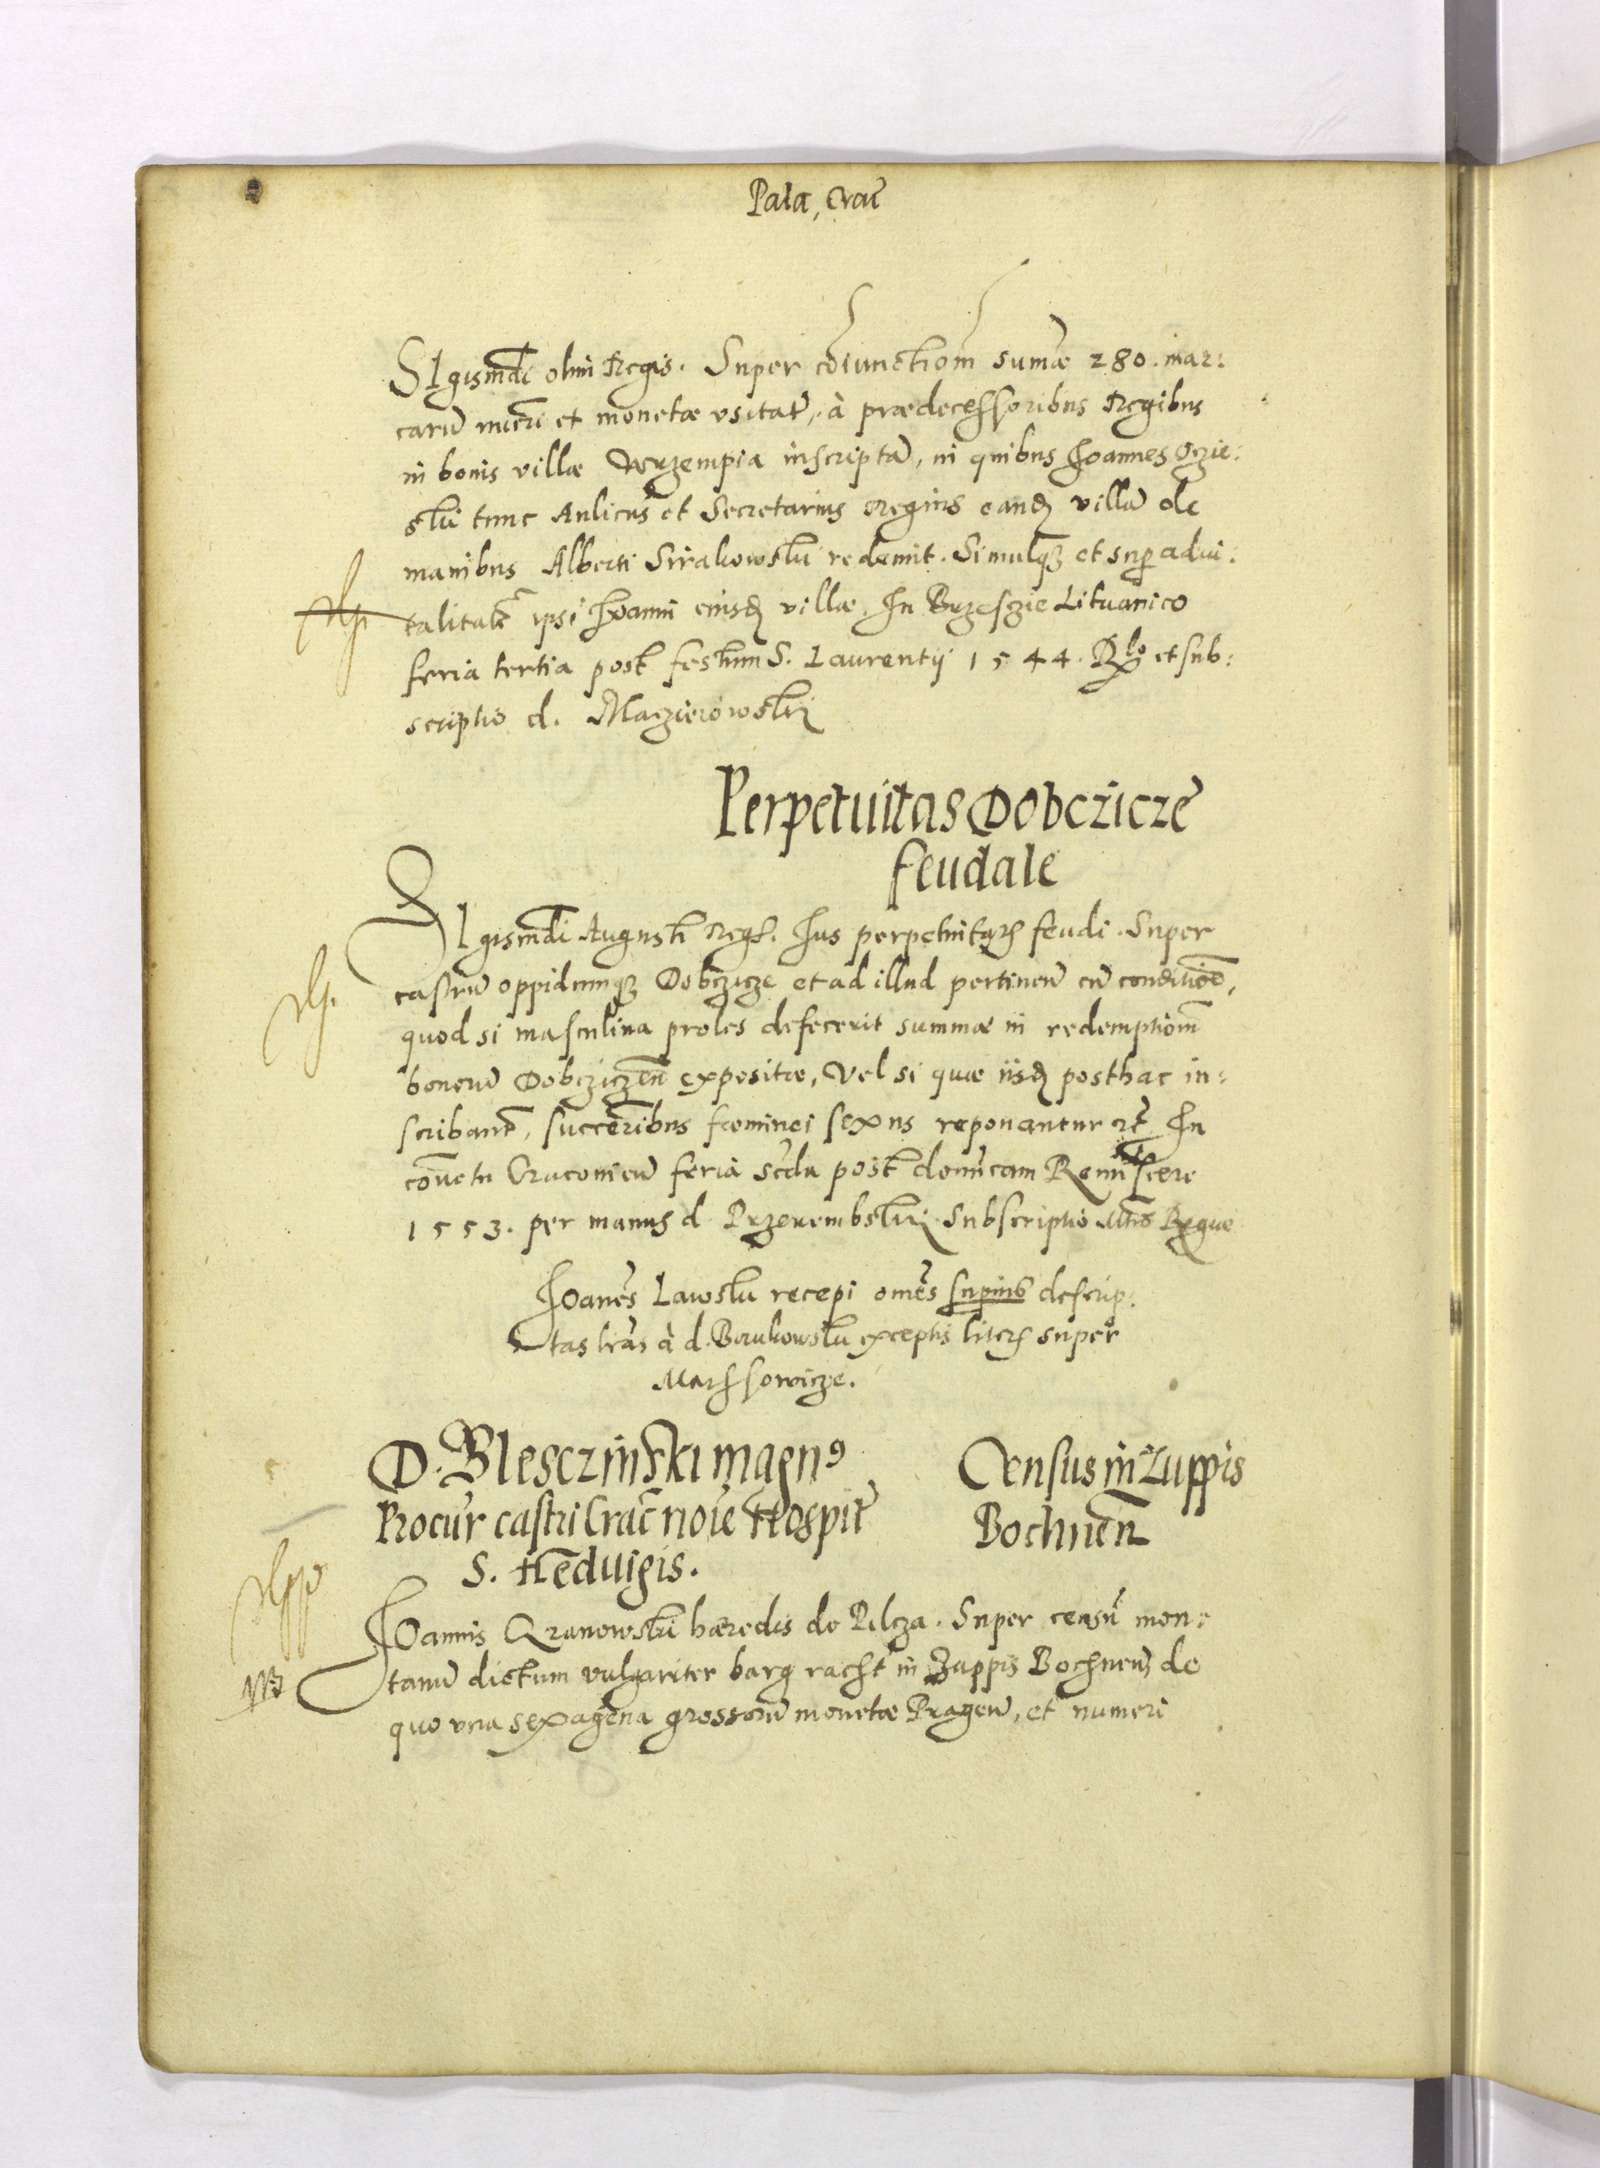 Pala, Crac̃
SIgismd̃i olim Regis. Super cõiunctiom̃ sum̃æ 280. mar:
carũ nu̅eri et monetæ usitat̃, à prædecessoribus Regibus
in bonis villæ Wrzempia inscriptã, in quibus Joannes Ocie:
ski tunc Aulicus et Secretarius Regius eandẽ villã de
manibus Alberti Sirakowski redemit. Simulq; et sup̱ advi:
talitatẽ ipsi Joanni eiusdẽ villæ. In Brzesczie Lituanico
feria tertia post festum S. Laurentij 1544. Rlo et sub:
scriptio d. Macziejowskij
Perpetuitas Dobczicze
feudale
SIgismd̃i Augusti Regs. Jus perpetuitatis feudi. Super
castrũ oppidumq; Dobczicze et ad illud pertineñ cũ conditiõe,
quod si masculina proles defecerit summæ in redemptiom̃
bonorũ Dobcziczeñ expositæ, vel si quæ iisdẽ posthac in:
scribant̃, successoribus fœminei sexus reponantur etc̃ In
cõvẽtu Cracovieñ feria sc̃da post domĩcam Reminiscere
1553. per manus d. Przerembskij Subscriptio Mtis Regiae
Joanẽs Lawski recepi omẽs supius descrip:
tas lr̃as à d. Borukowski exceptis literis super
Marssowicze.
D. Blesczinski magn9
Procur̃ castri Crac̃ noĩe Hospit̃
S. Hẽdvigis.
Census in Zuppis
Bochneñ
JOannis Granowski hæredis de Pilcza. Super censũ mon:
tanũ dictum vulgariter barg racht in Zuppis Bochneñ de
quo una sexagẽna grossorũ monetæ Prageñ, et numeri